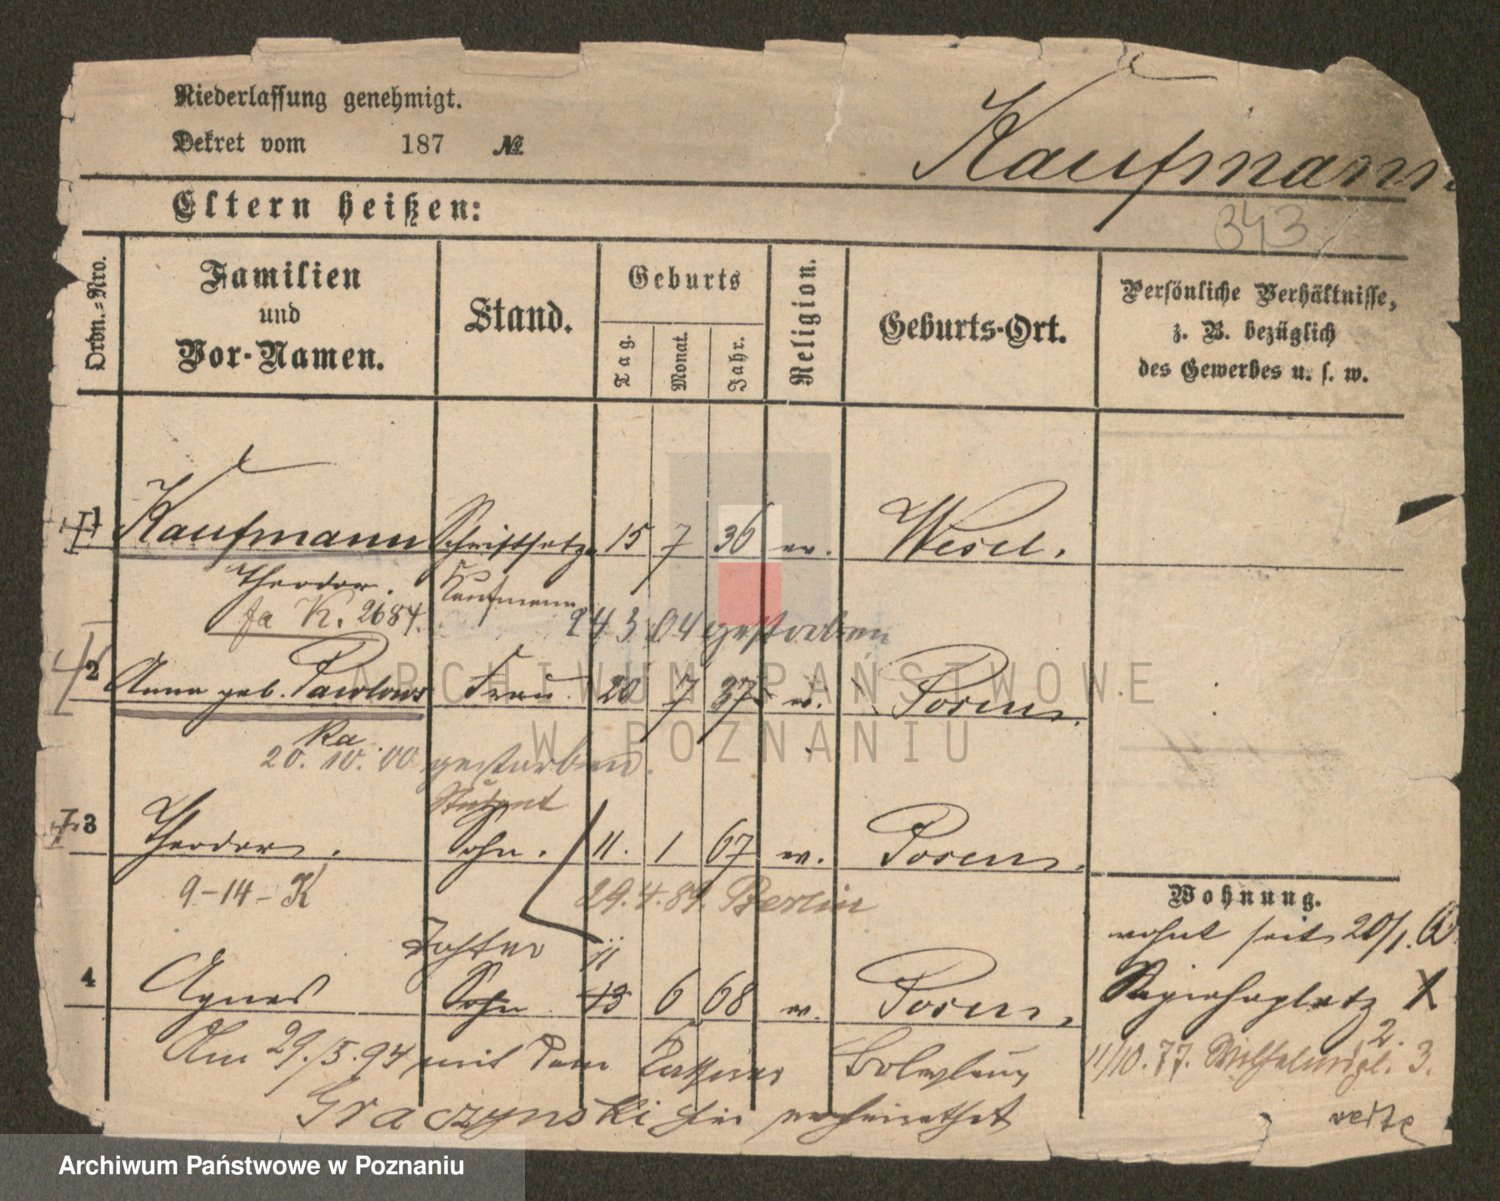 Niederlassung genehmigt.
Dekret vom 187 №
Kaufmann.
343
Eltern heißen:
Ordn.-Nro.
Familien und Vor-Namen.
Stand.
Geburts
Tag.
Monat.
Jahr.
Religion.
Geburts-Ort.
Persönliche Verhältnisse,
z. B. bezüglich
des Gewerbes u. s. w.
1 Kaufmann Schriftsetzer 15 7 36 ev. Wesel.
Theodor. Kaufmann
fa K. 2684. 24 3 04 gestorben
2 Anna geb. Pawlows Frau 20 7 37 Posen.
ka
20. 10. 00 gestorben.
Student
3 Theodor. Sohn. 11. 1 67 ev. Posen.
9-14-K 29.4.89. Berlin
Wohnung.
wohnt seit 20/1.
Tochter 11
4 Agnes Sohn 13 6 68 ev. Posen.
Sapiehaplatz X
2.
Am 29./5.94 mit dem Boleslaus
11/10.77. Wilhelmspl. 3.
Graczynski hier verheirathet
verte
ARCHIWUM PAŃSTWOWE
W POZNANIU
Archiwum Państwowe w Poznaniu